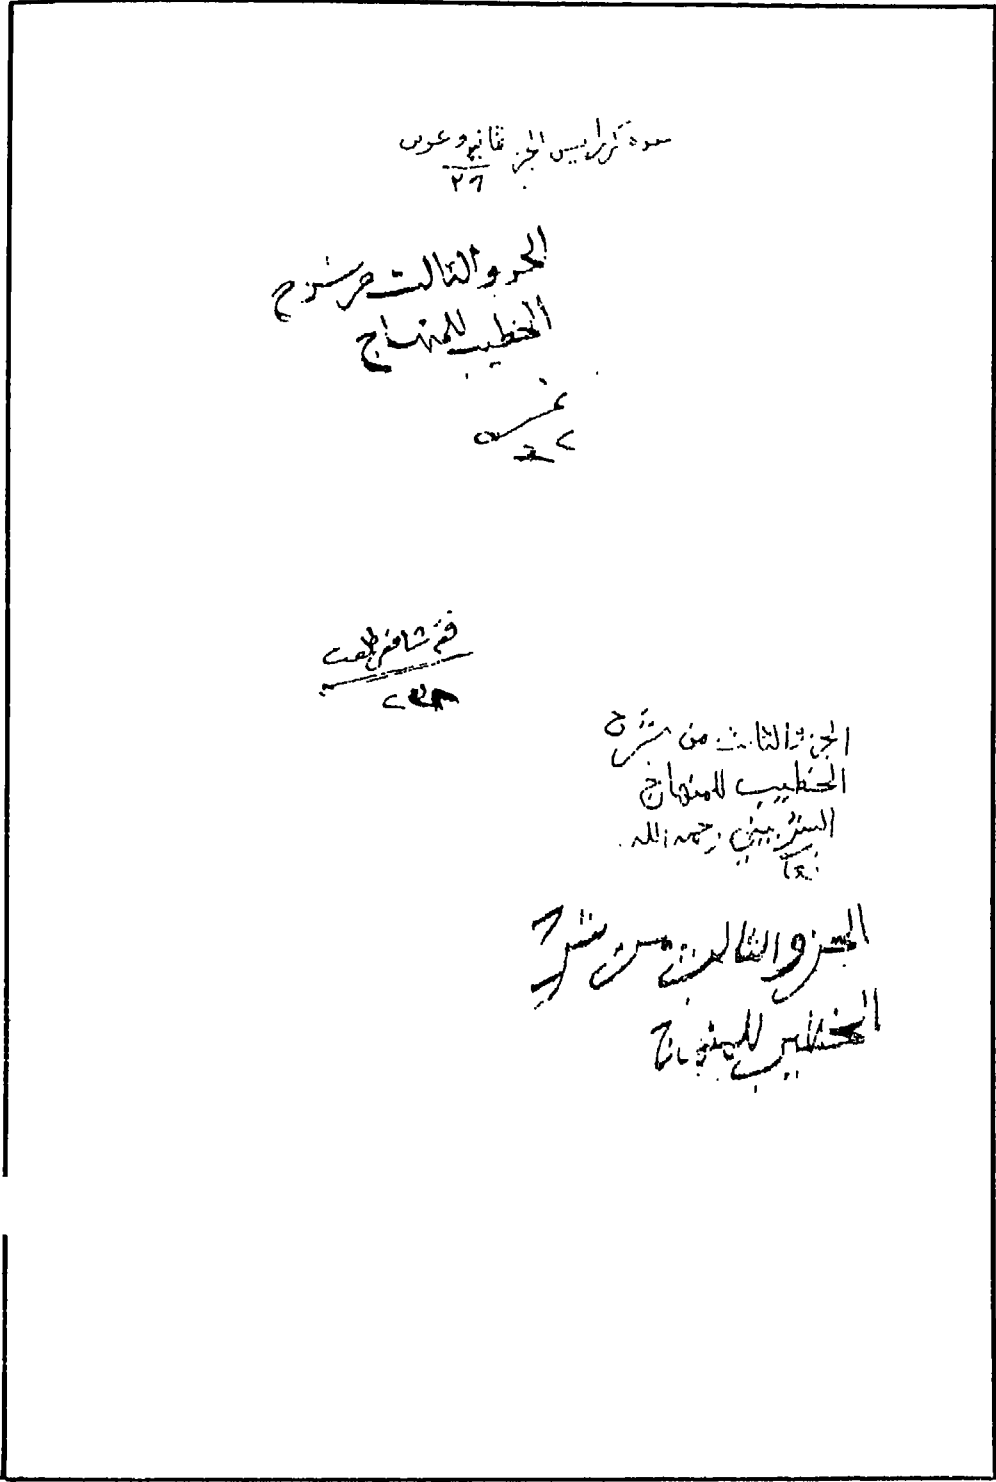 كراريس الجز ثمانيه وعشرين
٢٦
الجزو الثالث من شرح
الخطيب للمنهاج
نمرة
فقه شافعي
الجزؤ الثالث من شرح
الخطيب للمنهاج
الشربيني رحمه الله
تعا
الجزو الثالث من شرح
الخطيب للمنهاج